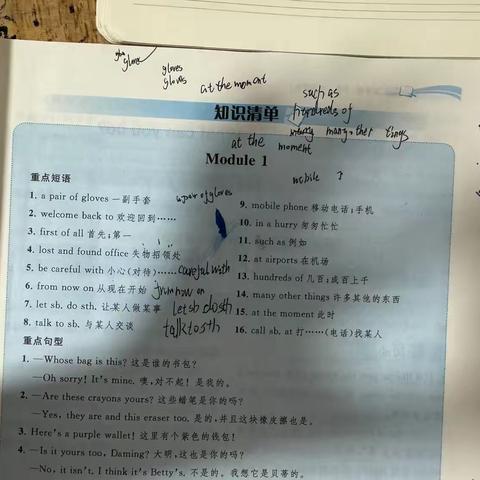 glove
gloves
gloves
at the moment
such as
hundreds of
many other tings
知识清单
at the
moment
Module 1
mobile
重点短语
1. a pair of gloves 一副手套
a pair of gloves
2. welcome back to 欢迎回到……
3. first of all 首先;第一
4. lost and found office 失物招领处
5. be careful with 小心(对待)……
careful with
6. from now on 从现在开始
from now on
7. let sb. do sth. 让某人做某事
let sb. do sth
8. talk to sb. 与某人交谈
talk to sth
9. mobile phone 移动电话;手机
10. in a hurry 匆匆忙忙
11. such as 例如
12. at airports 在机场
13. hundreds of 几百;成百上千
14. many other things 许多其他的东西
15. at the moment 此时
16. call sb. at 打……(电话)找某人
重点句型
1. —Whose bag is this? 这是谁的书包?
—Oh sorry! It's mine. 噢,对不起! 是我的。
2. —Are these crayons yours? 这些蜡笔是你的吗?
—Yes, they are and this eraser too. 是的,并且这块橡皮擦也是。
3. Here's a purple wallet! 这里有个紫色的钱包!
4. —Is it yours too, Daming? 大明,这也是你的吗?
—No, it isn't. I think it's Betty's. 不是的。我想它是贝蒂的。